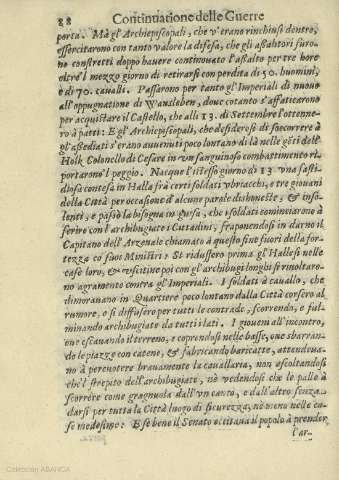 88 Continuatione delle Guerre
porta. Ma gl'Archiepiscopali, che v'erano rinchiusi dentro,
essercitarono con tanto valore la difesa, che gli assalitori furo-
no constretti doppo hauere continouato l'assalto per tre hore
oltre'l mezzo giorno di retirarsi con perdita di 50. huomini,
e di 70. caualli. Passarono per tanto gl'Imperiali di nuouo
all'oppugnatione di Wansleben, doue cotanto s'affaticarono
per acquistare il Castello, che alli 13. di Settembre l'ottenne-
ro à patti: E gl'Archiepiscopali, che desiderosi di soccorrere à
gl'assediati s'erano auuenuti poco lontano di là nelle gēti dell'
Holk Colonello di Cesare in vn sanguinoso combattimento ri-
portarono'l peggio. Nacque l'istesso giorno di 13. vna fasti-
diosa contesa in Halla frà certi soldati vbriacchi, e tre giouani
della Città per occasione d'alcune parole dishoneste, & inso-
lenti, e passò la bisogna in guisa, che i soldati cominciarono à
ferire con l'archibugiate i Cittadini, fraponendosi in darno il
Capitano dell'Arzenale chiamato à questo fine fuori della for-
tezza cō suoi Ministri: Si ridussero prima gl'Hallesi nelle
case loro, & vscitine poi con gl'archibugi longhi si riuoltaro-
no agramente contra gl'Imperiali. I soldati à cauallo, che
dimorauano in Quartiere poco lontano dalla Città corsero al
rumore, e si diffusero per tutte le contrade, scorrendo, e ful-
minando archibugiate da tutti i lati. I giouani all'incontro,
oue escauando il terreno, e coprendosi nelle basse, oue sbarran-
do le piazze con catene, & fabricando baricatte, attendeua-
no à percuotere brauamente la cauallaria, non ascoltandosi
ch'l strepito dell'archibugiate, nè vedendosi che le palle à
scorrere come gragnuola dall'vn canto, e dall'altro senza
darsi per tutta la Città luogo di sicurezza, nè meno nelle ca-
se medesime: E se bene il Senato eccitaua il popolo à prender
l'ar-
Colección ABANCA